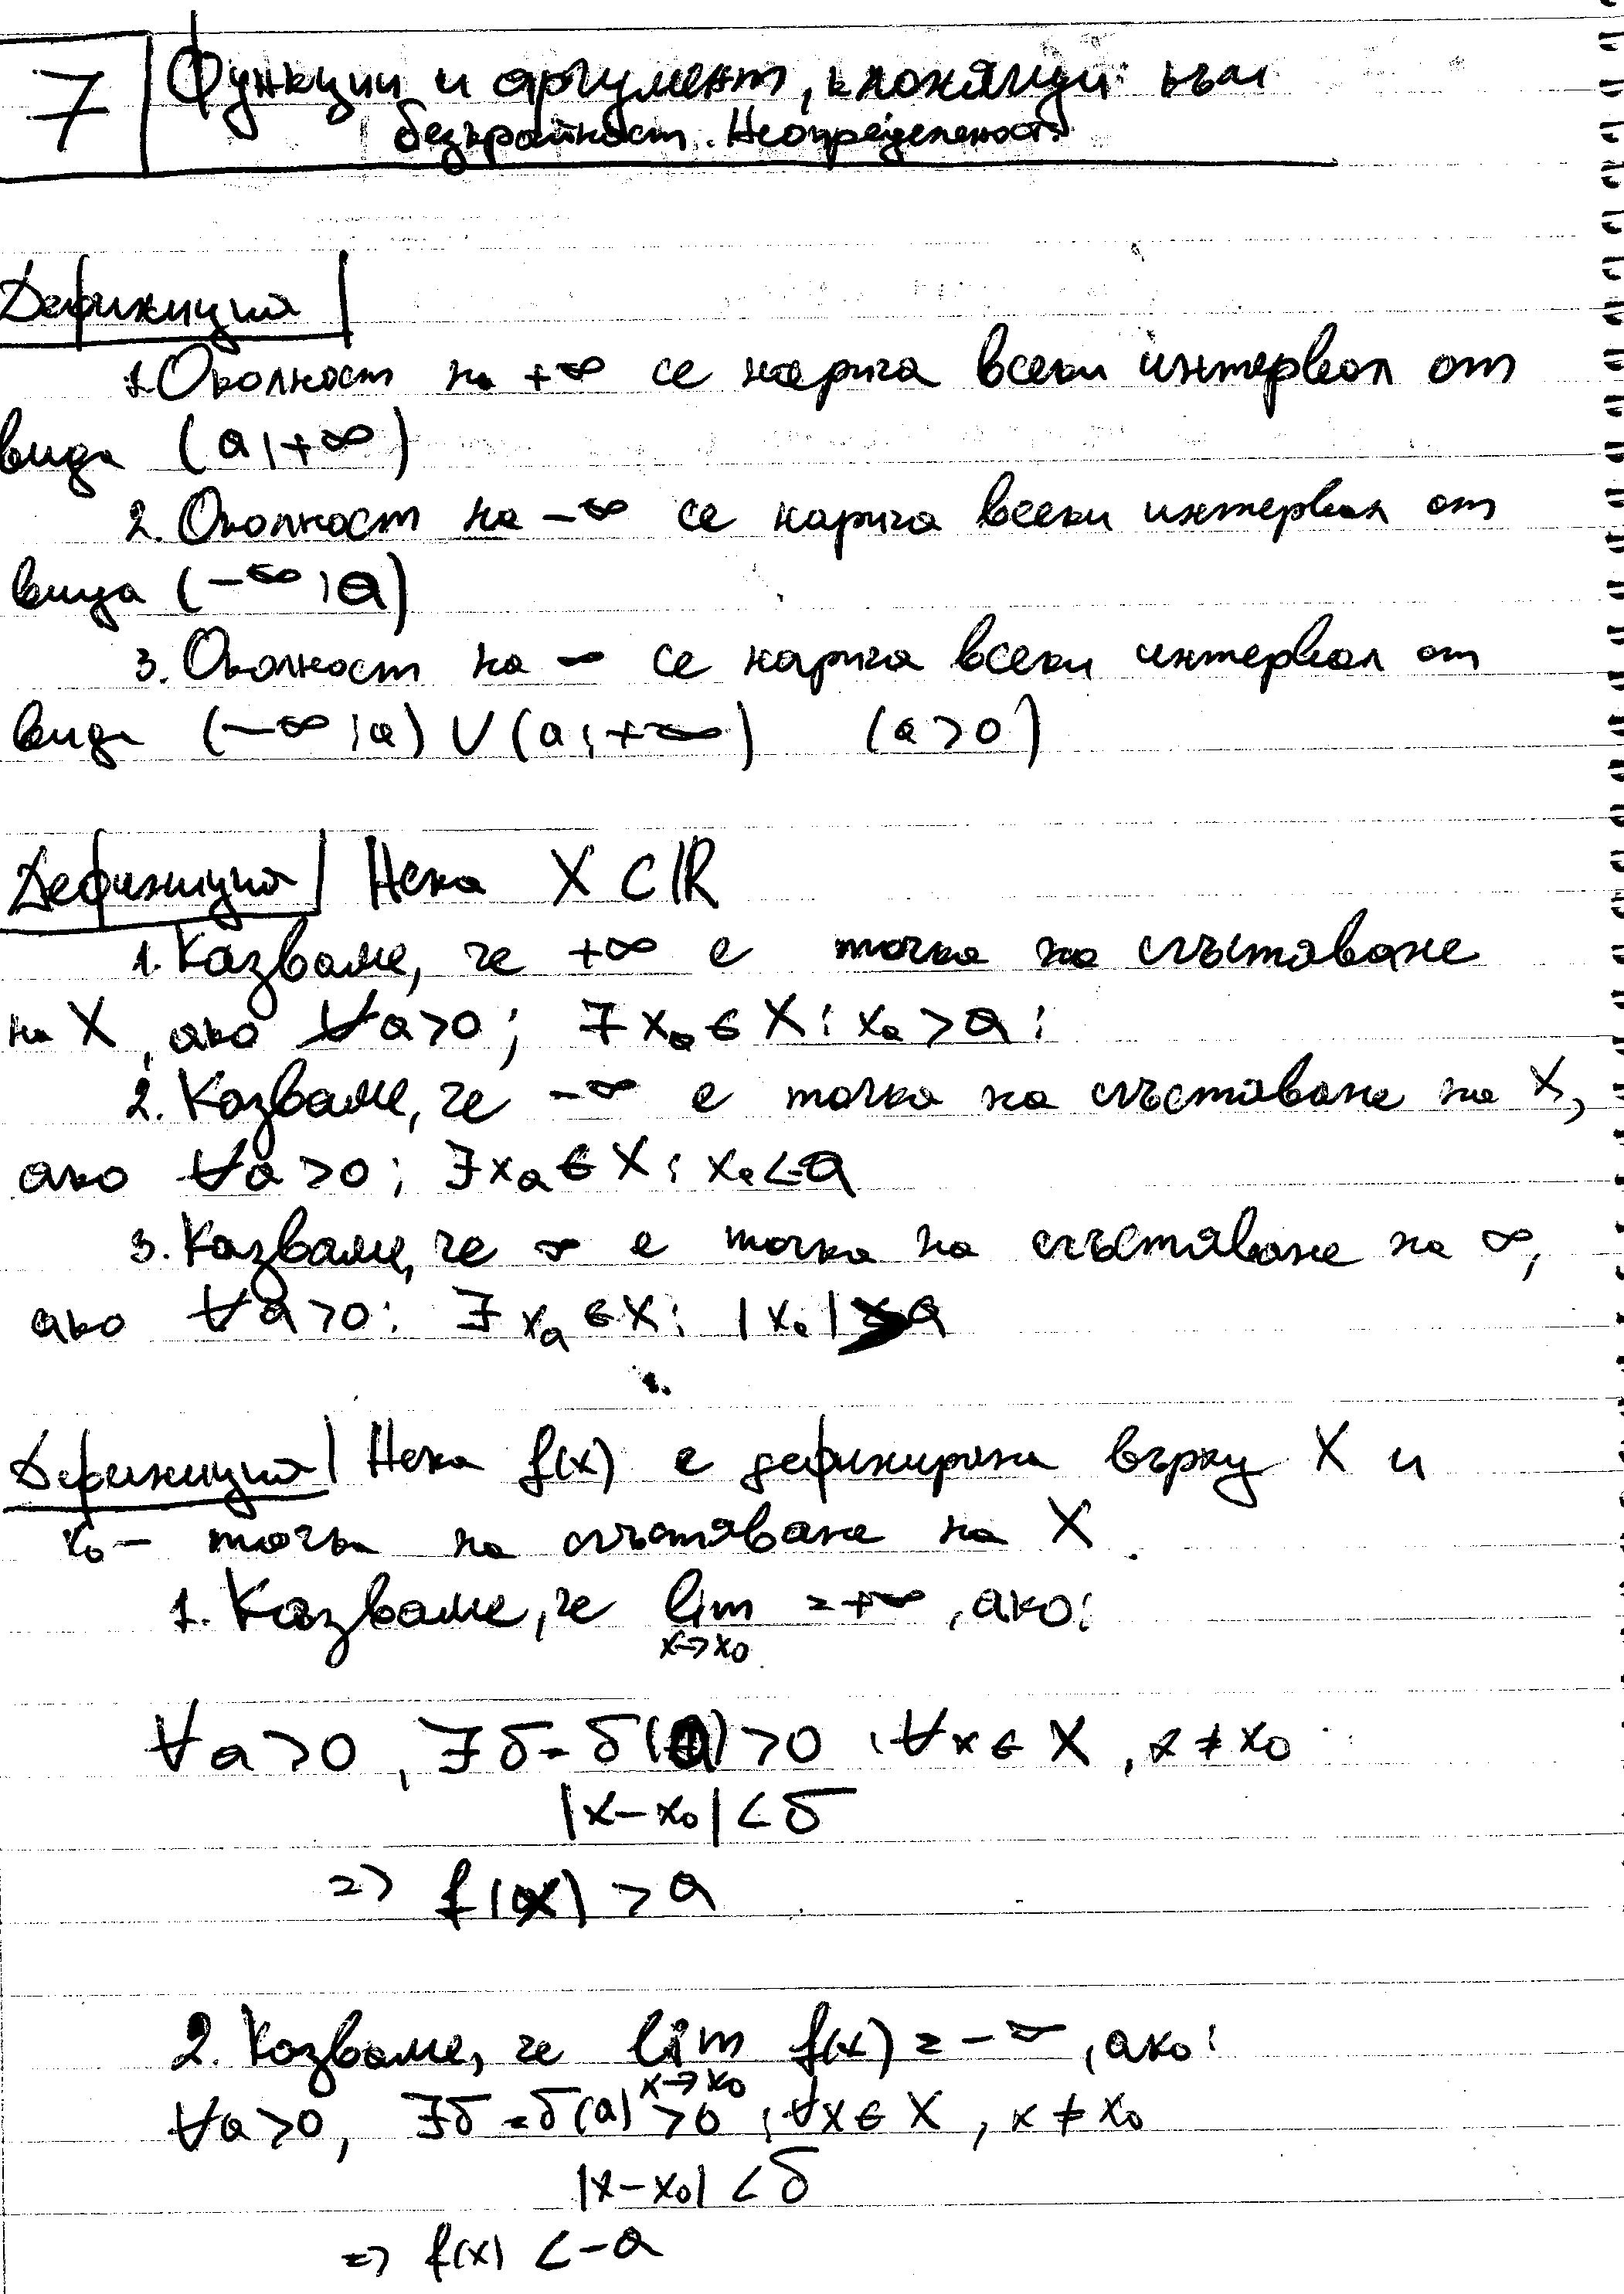 7 Функции и аргумент, клонящи към
безкрайност. Неопределеност
Дефиниция
1. Околност на +∞ се нарича всеки интервал от
вида (a, +∞)
2. Околност на -∞ се нарича всеки интервал от
вида (-∞, a)
3. Околност на ∞ се нарича всеки интервал от
вида (-∞, a) ∪ (a, +∞) (a>0)
Дефиниция Нека X ⊂ ℝ
1. Казваме, че +∞ е точка на сгъстяване
на X, ако ∀a>0; ∃ xₐ ∈ X: xₐ > a:
2. Казваме, че -∞ е точка на сгъстяване на X,
ако ∀a>0; ∃ xₐ ∈ X: xₐ < -a
3. Казваме, че ∞ е точка на сгъстяване на ∞,
ако ∀a>0: ∃ xₐ ∈ X: |xₐ| > a
Дефиниция Нека f(x) е дефинирана върху X и
x₀ - точка на сгъстяване на X.
1. Казваме, че lim = +∞, ако:
x→x₀
∀a>0, ∃δ = δ(a) > 0 : ∀x ∈ X, x ≠ x₀
|x-x₀| < δ
=> f(x) > a
2. Казваме, че lim f(x) = -∞, ако:
x→x₀
∀a>0, ∃δ = δ(a) > 0 : ∀x ∈ X, x ≠ x₀
|x-x₀| < δ
=> f(x) < -a